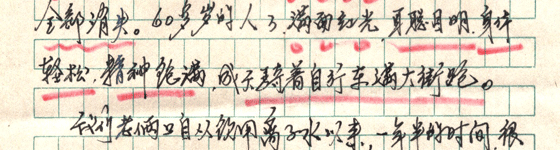 全部消失。60多岁的人了，满面红光，耳聪目明，身体
轻松，精神饱满，成天骑着自行车满大街跑。
我们老俩口自从饮用离子水以来，一年半的时间，很